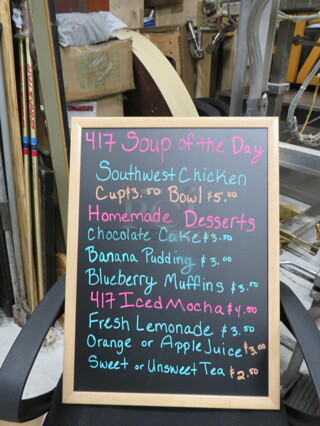 417 Soup of the Day
Southwest Chicken
Cup $3.50 Bowl $5.00
Homemade Desserts
Chocolate Cake $3.50
Banana Pudding $3.00
Blueberry Muffins $3.50
417 Iced Mocha $4.00
Fresh Lemonade $3.50
Orange or Apple Juice $3.00
Sweet or Unsweet Tea $2.50